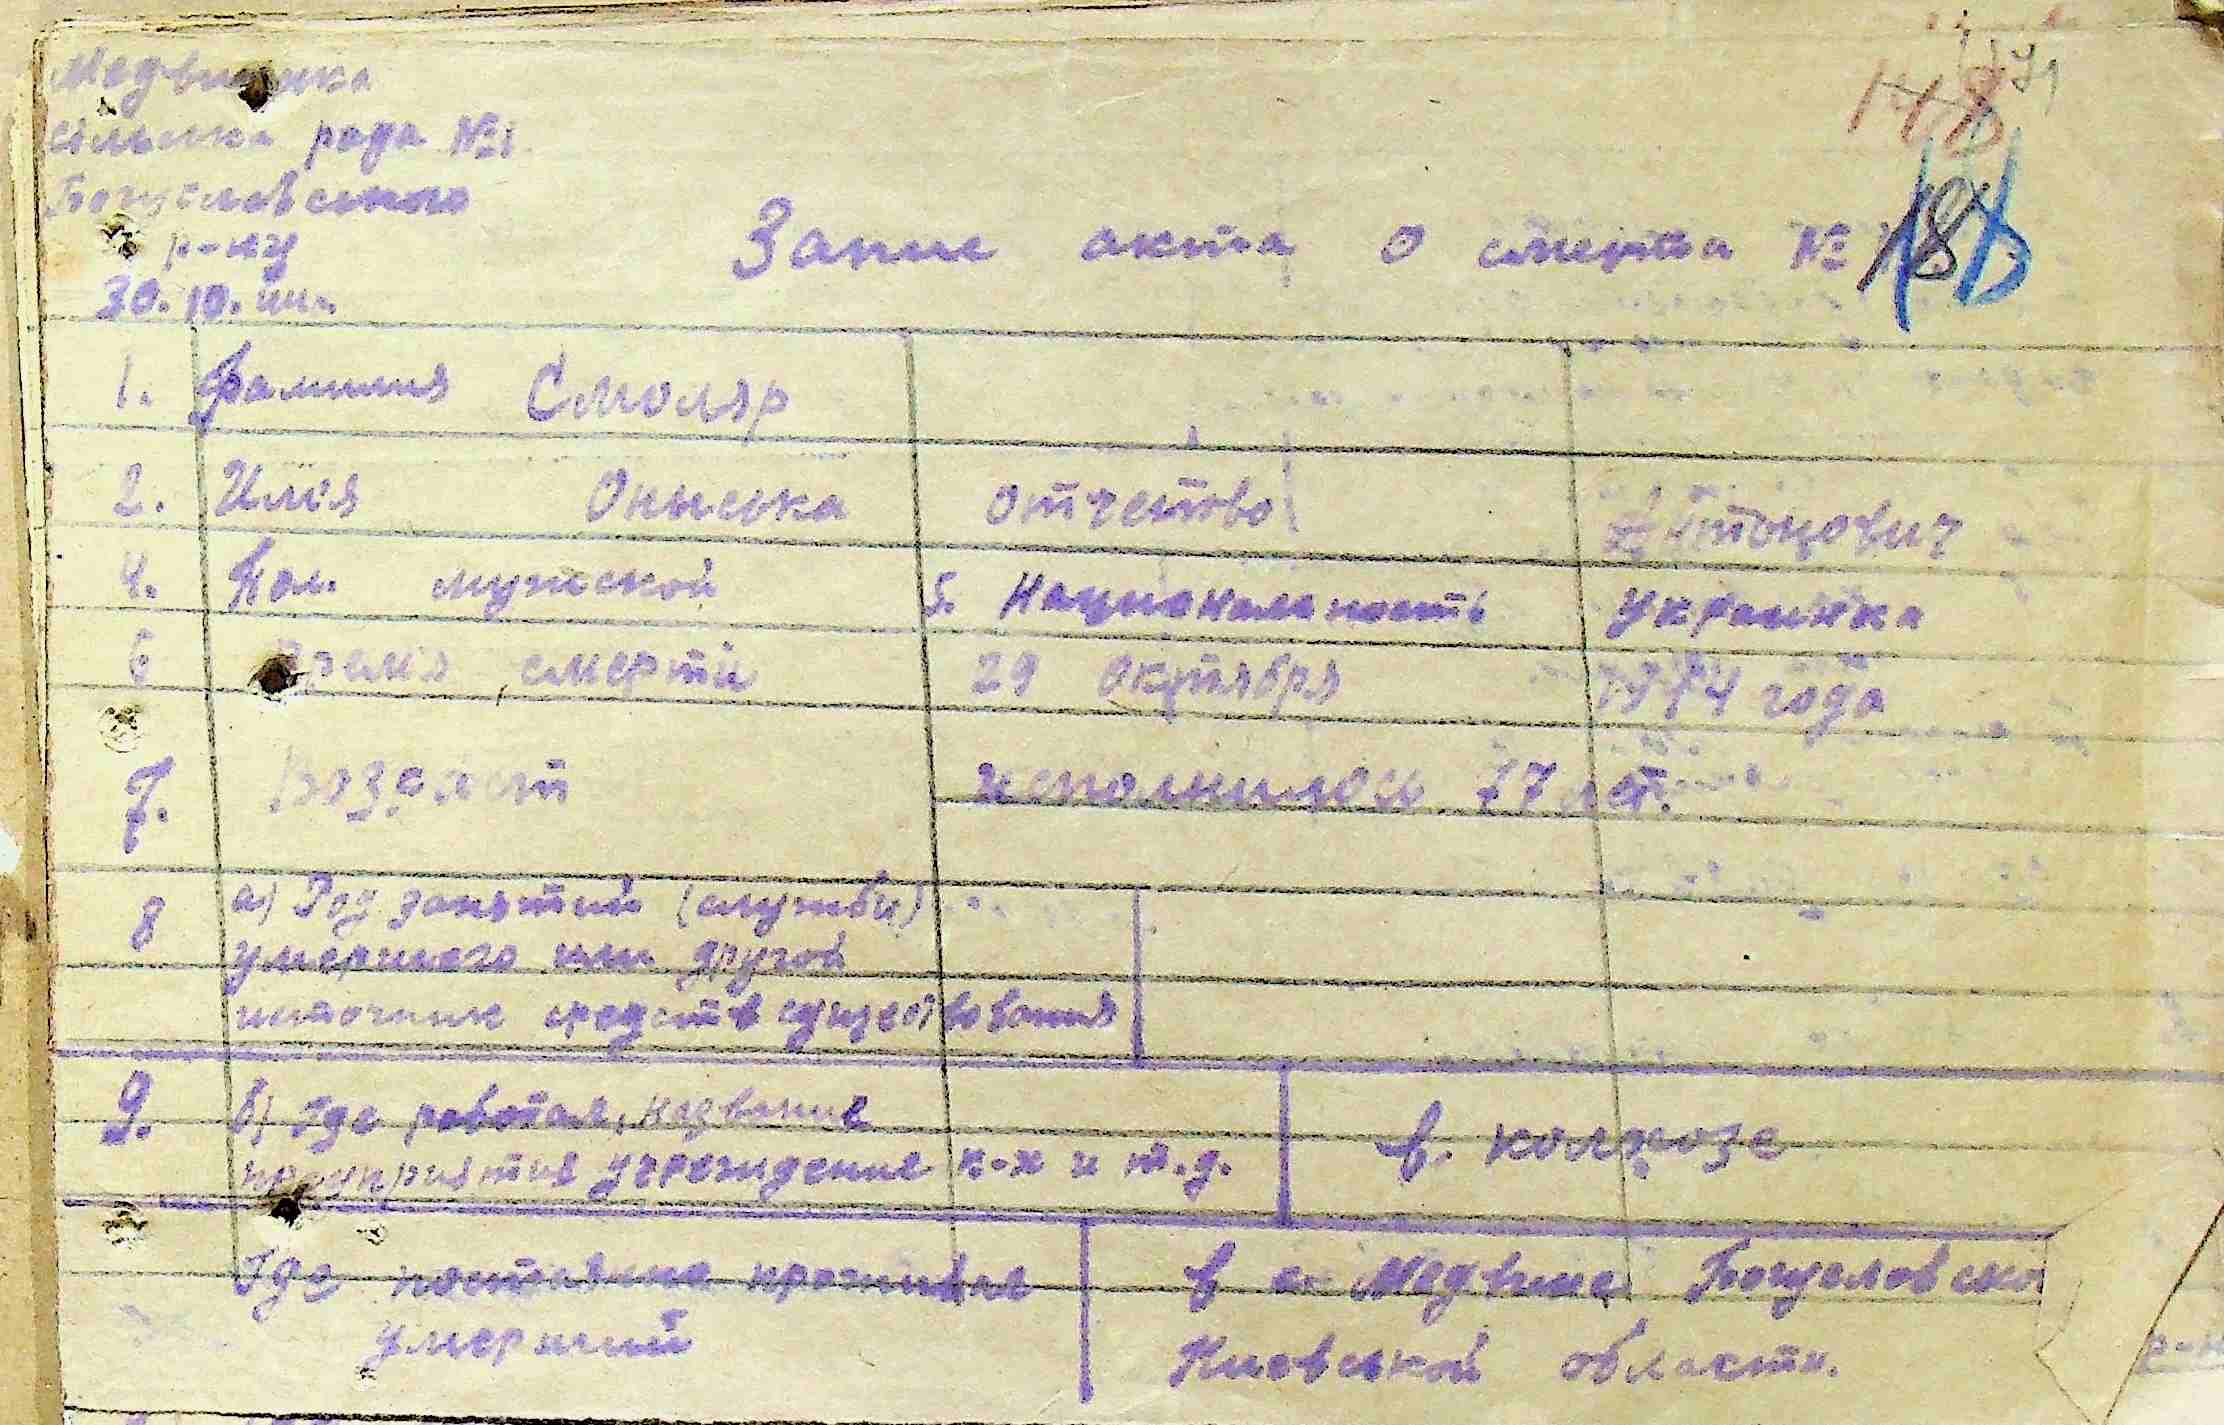 Медвинська
сільська рада №1
Богуславського
р-ну
30. 10. 44.
Запис акта о смерти №
1. Фамилия Смоляр
2. ИмяОниська отчество
4. Пол. мужской 5. Национальность украинка
6 Время смерти 29 октября 1944 года
7. Возраст исполнилось 77 лет.
8 а) Род занятий (службы)
умершего или другой
источник средств существования
9. б) Где работал, название
предприятия учреждение к-х и т.д. в. колхозе
Где постояно проживал в с. Медвине Богуславско
умерший Киевской области. р-н